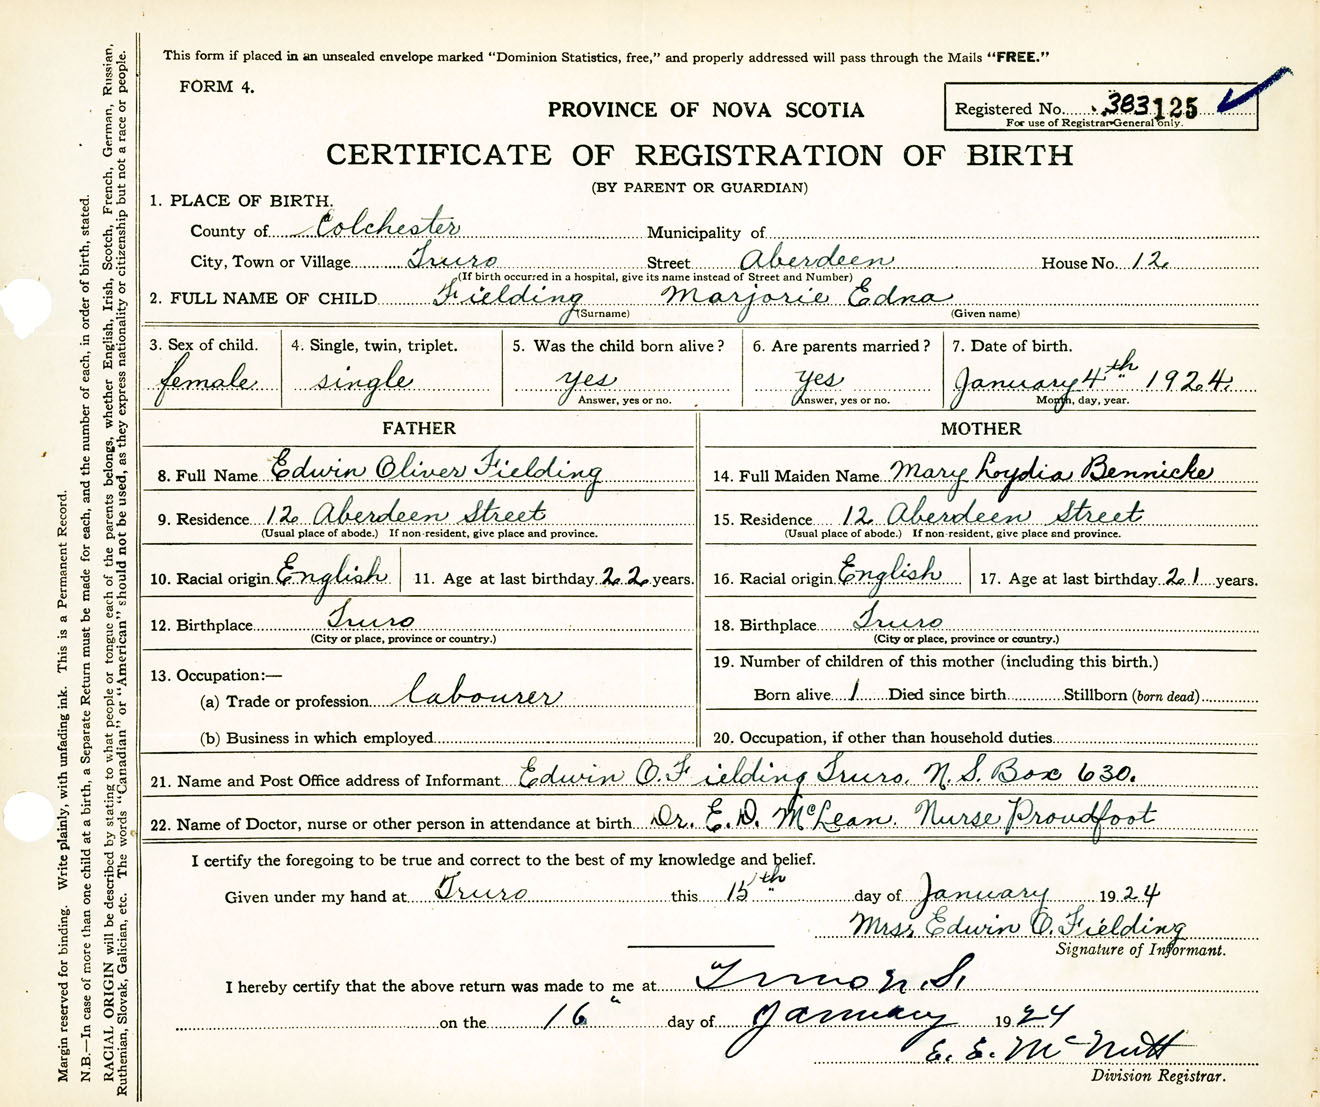 This form if placed in an unsealed envelope marked "Dominion Statistics, free," and properly addressed will pass through the Mails "FREE."
FORM 4.
PROVINCE OF NOVA SCOTIA
Registered No. 383125
For use of Registrar-General only.
CERTIFICATE OF REGISTRATION OF BIRTH
(BY PARENT OR GUARDIAN)
1. PLACE OF BIRTH.
County of Colchester Municipality of
City, Town or Village Truro Street Aberdeen House No. 12
(If birth occurred in a hospital, give its name instead of Street and Number)
2. FULL NAME OF CHILD Fielding Marjorie Edna
(Surname) (Given name)
3. Sex of child. 4. Single, twin, triplet. 5. Was the child born alive? 6. Are parents married? 7. Date of birth.
female single yes yes January 4th 1924.
Answer, yes or no. Answer, yes or no. Month, day, year.
FATHER MOTHER
8. Full Name Edwin Oliver Fielding 14. Full Maiden Name Mary Loydia Bennicke
9. Residence 12 Aberdeen Street 15. Residence 12 Aberdeen Street
(Usual place of abode.) If non-resident, give place and province. (Usual place of abode.) If non-resident, give place and province.
10. Racial origin English 11. Age at last birthday 22 years. 16. Racial origin English 17. Age at last birthday 21 years.
12. Birthplace Truro 18. Birthplace Truro
(City or place, province or country.) (City or place, province or country.)
13. Occupation:— 19. Number of children of this mother (including this birth.)
(a) Trade or profession labourer Born alive 1 Died since birth Stillborn (born dead)
(b) Business in which employed 20. Occupation, if other than household duties
21. Name and Post Office address of Informant Edwin O. Fielding Truro. N.S. Box 630.
22. Name of Doctor, nurse or other person in attendance at birth Dr. E. D. McLean. Nurse Proudfoot
I certify the foregoing to be true and correct to the best of my knowledge and belief.
Given under my hand at Truro this 15th day of January 1924
Mrs. Edwin O. Fielding
Signature of Informant.
I hereby certify that the above return was made to me at Truro N.S.
on the 16" day of January 1924
E. E. McNutt
Division Registrar.
Margin reserved for binding. Write plainly, with unfading ink. This is a Permanent Record.
N.B.—In case of more than one child at a birth, a Separate Return must be made for each, and the number of each, in order of birth, stated.
RACIAL ORIGIN will be described by stating to what people or tongue each of the parents belongs, whether English, Irish, Scotch, French, German, Russian,
Ruthenian, Slovak, Galician, etc. The words "Canadian" or "American" should not be used, as they express nationality or citizenship but not a race or people.